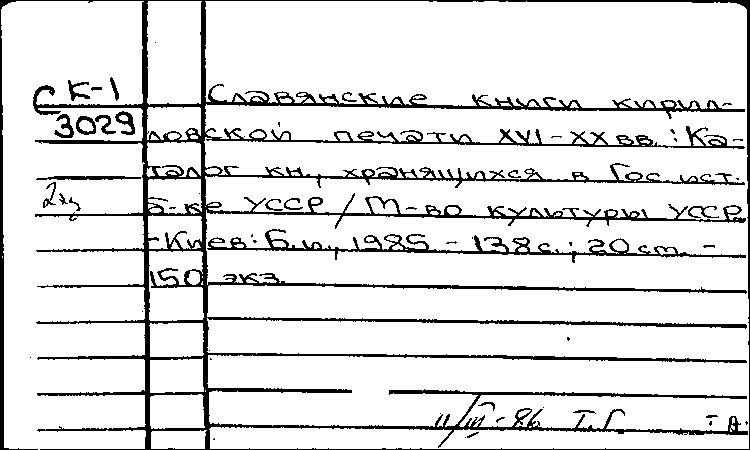 С К-1
3029
Славянские книги кирил-
ловской печати XVI-XX вв. : Ка-
талог кн., хранящихся в Гос. ист.
2 экз
б-ке УССР / М-во культуры УССР.
- Киев: Б.и., 1985 - 138 с.; 20 см. -
150 экз.
11/III-86 Т.Г.